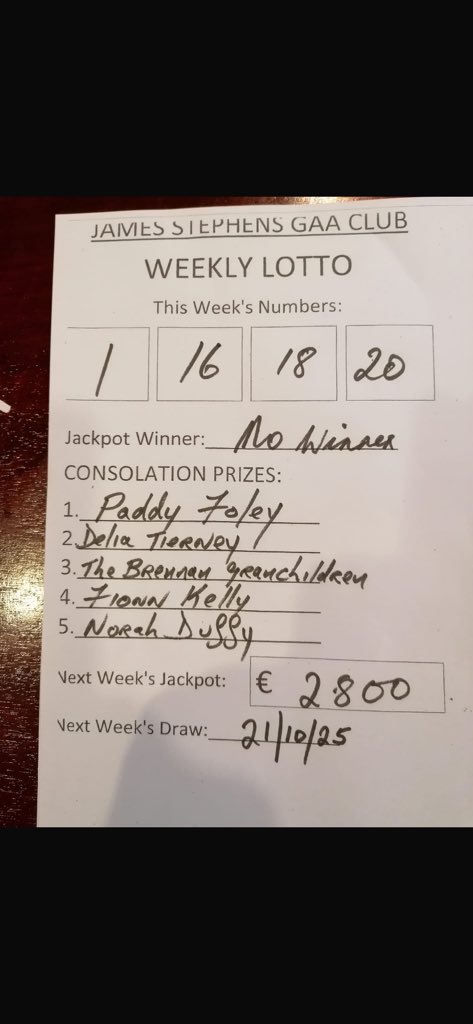 JAMES STEPHENS GAA CLUB
WEEKLY LOTTO
This Week's Numbers:
1 16 18 20
Jackpot Winner: No Winner
CONSOLATION PRIZES:
1. Paddy Foley
2. Delia Tierney
3. The Brennan granchildren
4. Fionn Kelly
5. Norah Duffy
Next Week's Jackpot: € 2800
Next Week's Draw: 21/10/25